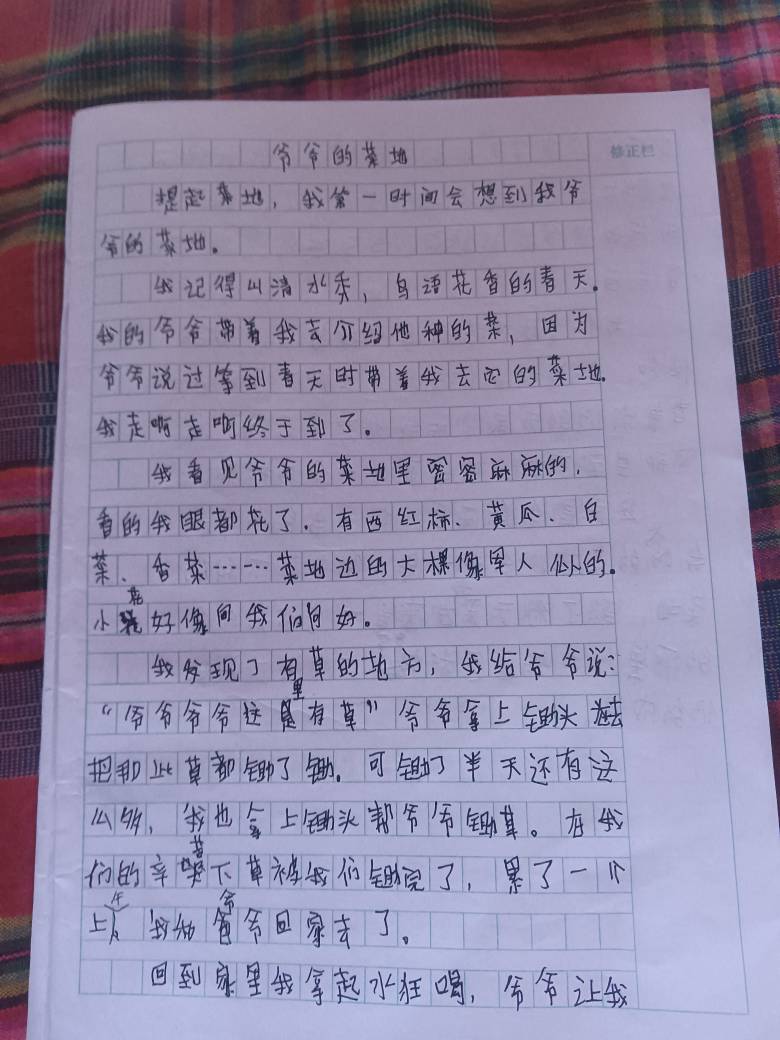 爷爷的菜地
修正栏
提起菜地，我第一时间会想到我爷
爷的菜地。
我记得山清水秀，鸟语花香的春天。
我的爷爷带着我去介绍他种的菜，因为
爷爷说过等到春天时带着我去它的菜地。
我走啊走啊终于到了。
我看见爷爷的菜地里密密麻麻的，
香的我眼都花了。有西红柿、黄瓜、白
菜、香菜……菜地边的大棵像军人似的。
小花好像向我们问好。
我发现了有草的地方，我给爷爷说：
“爷爷爷爷这里有草”爷爷拿上锄头去
把那些草都锄了锄。可锄了半天还有这
么多，我也拿上锄头帮爷爷锄草。在我
们的辛苦下草被我们锄完了，累了一个
上午我和爷爷回家去了。
回到家里我拿起水狂喝，爷爷让我